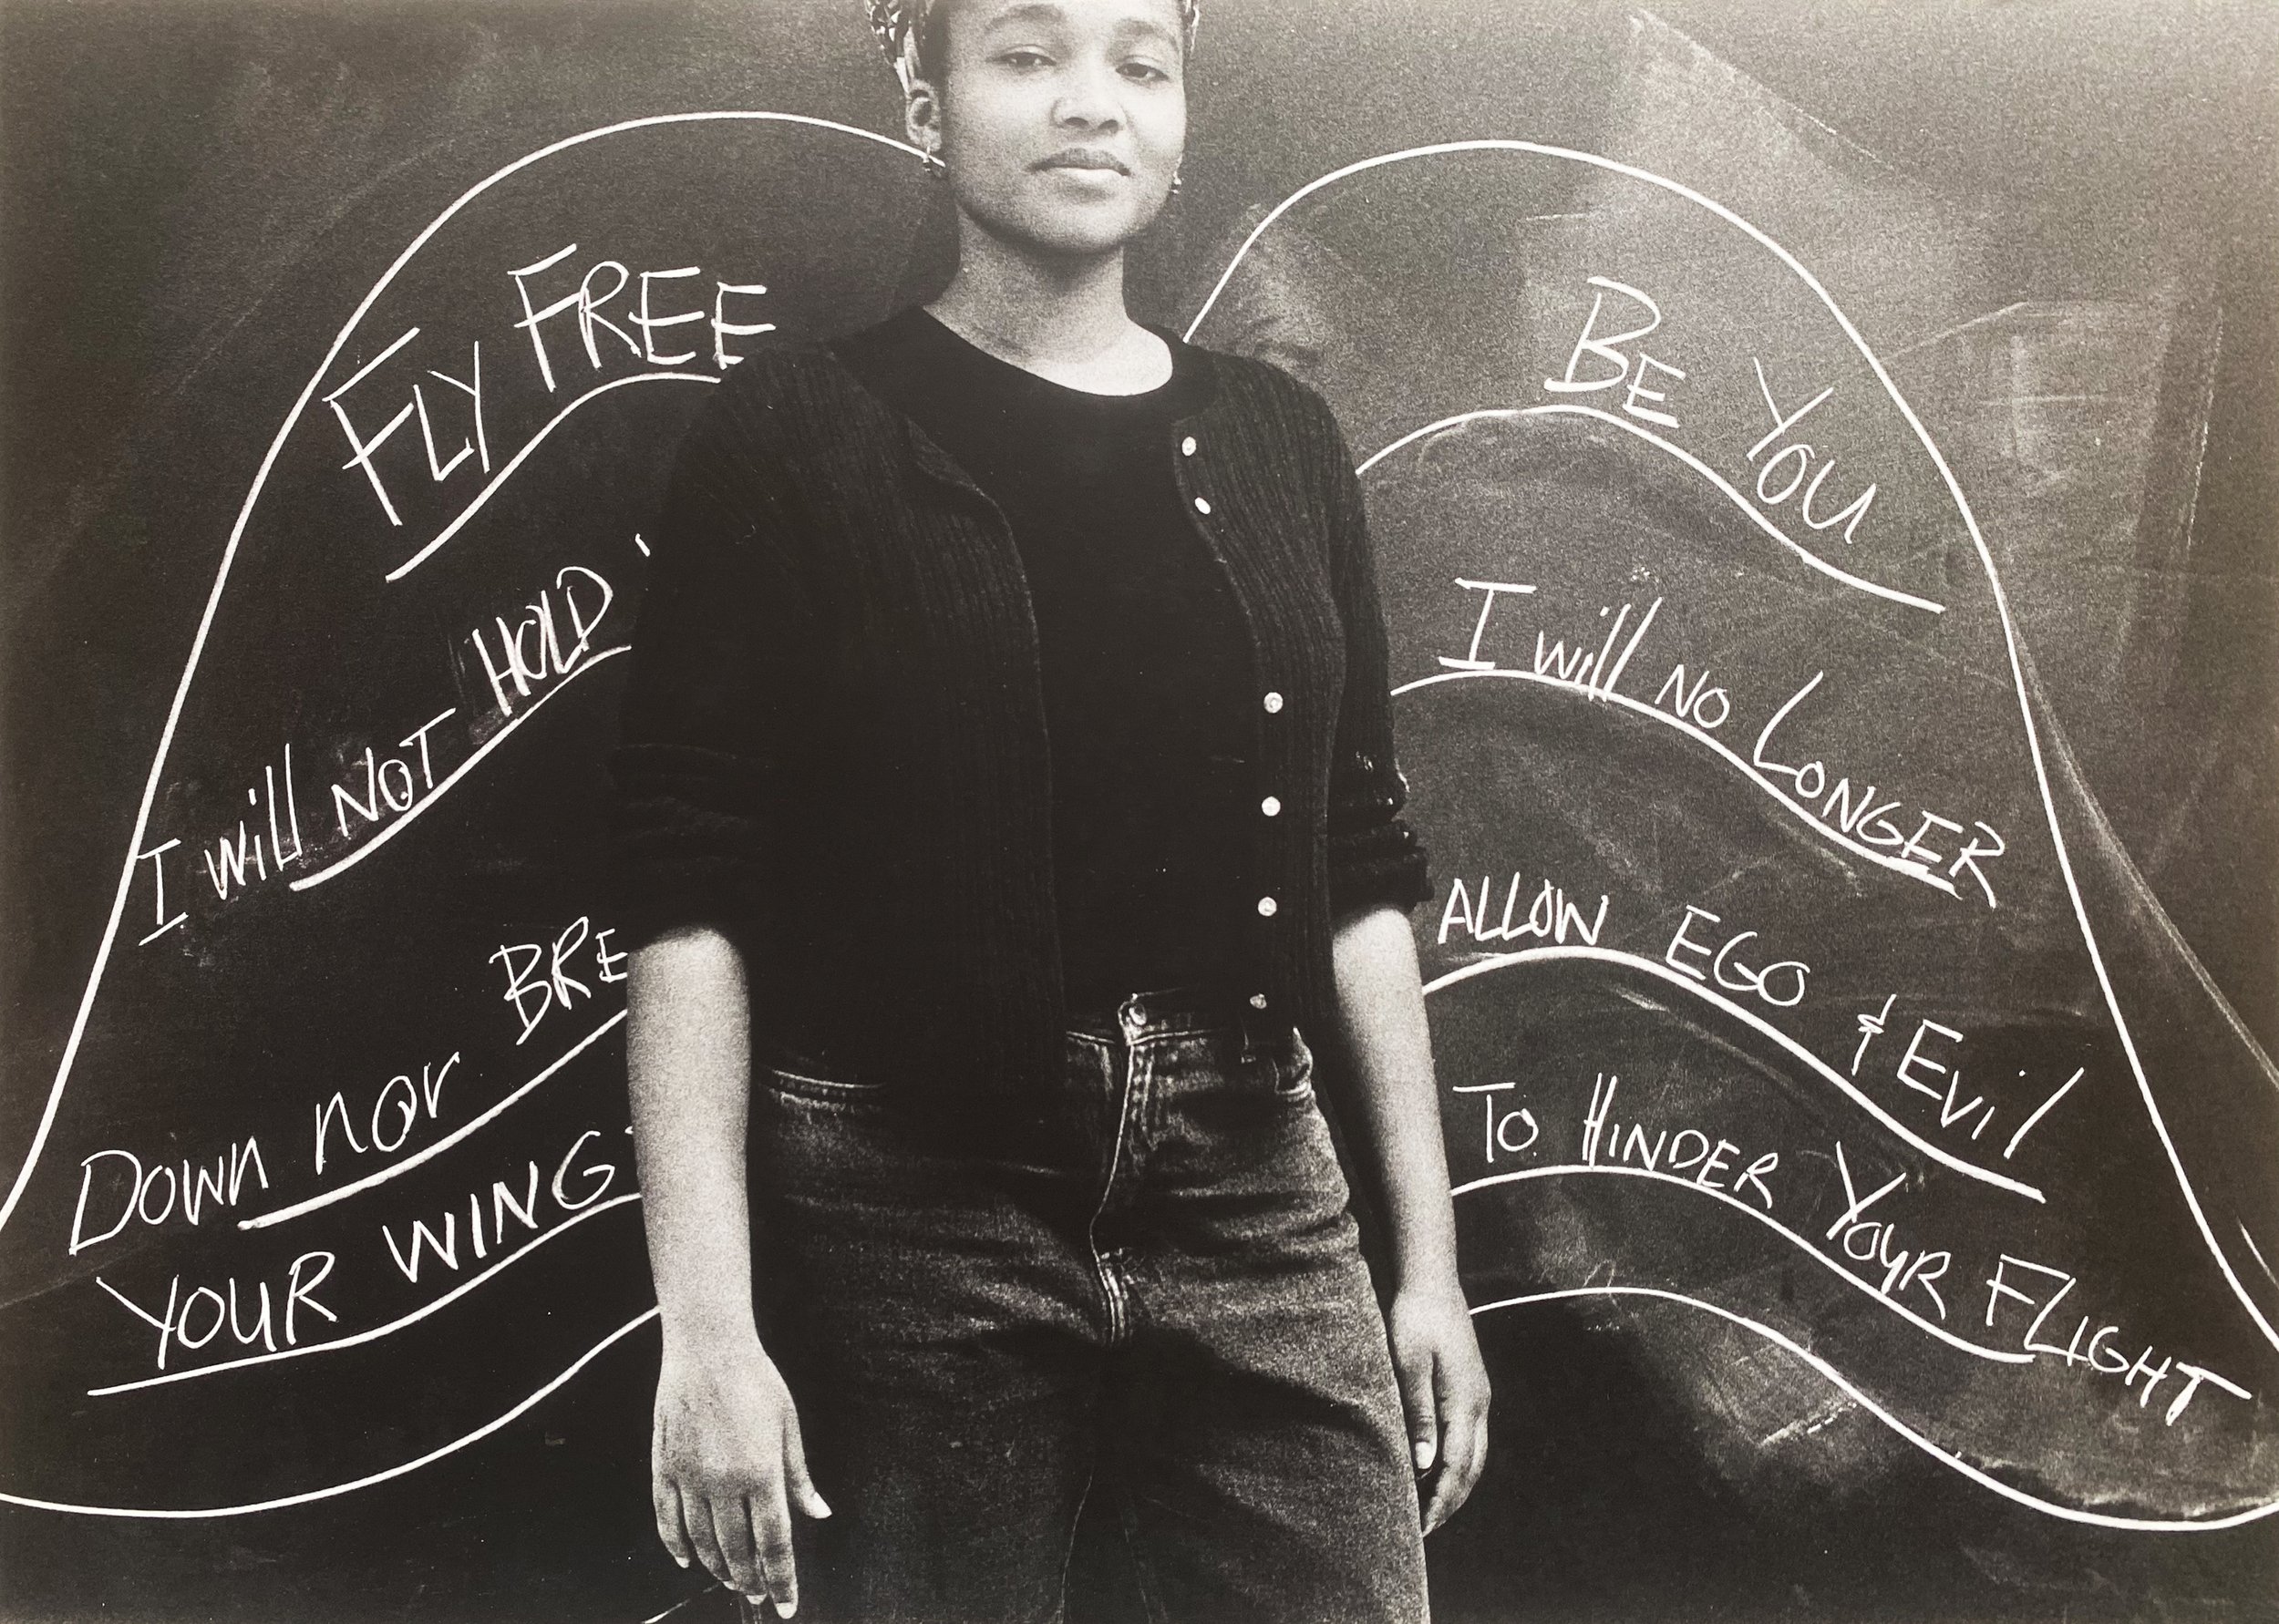 FLY FREE
I will NOT HOLD
DOWN nor BRE
YOUR WING
BE YOU
I will NO LONGER
ALLOW EGO & EVil
TO HINDER YOUR FLIGHT